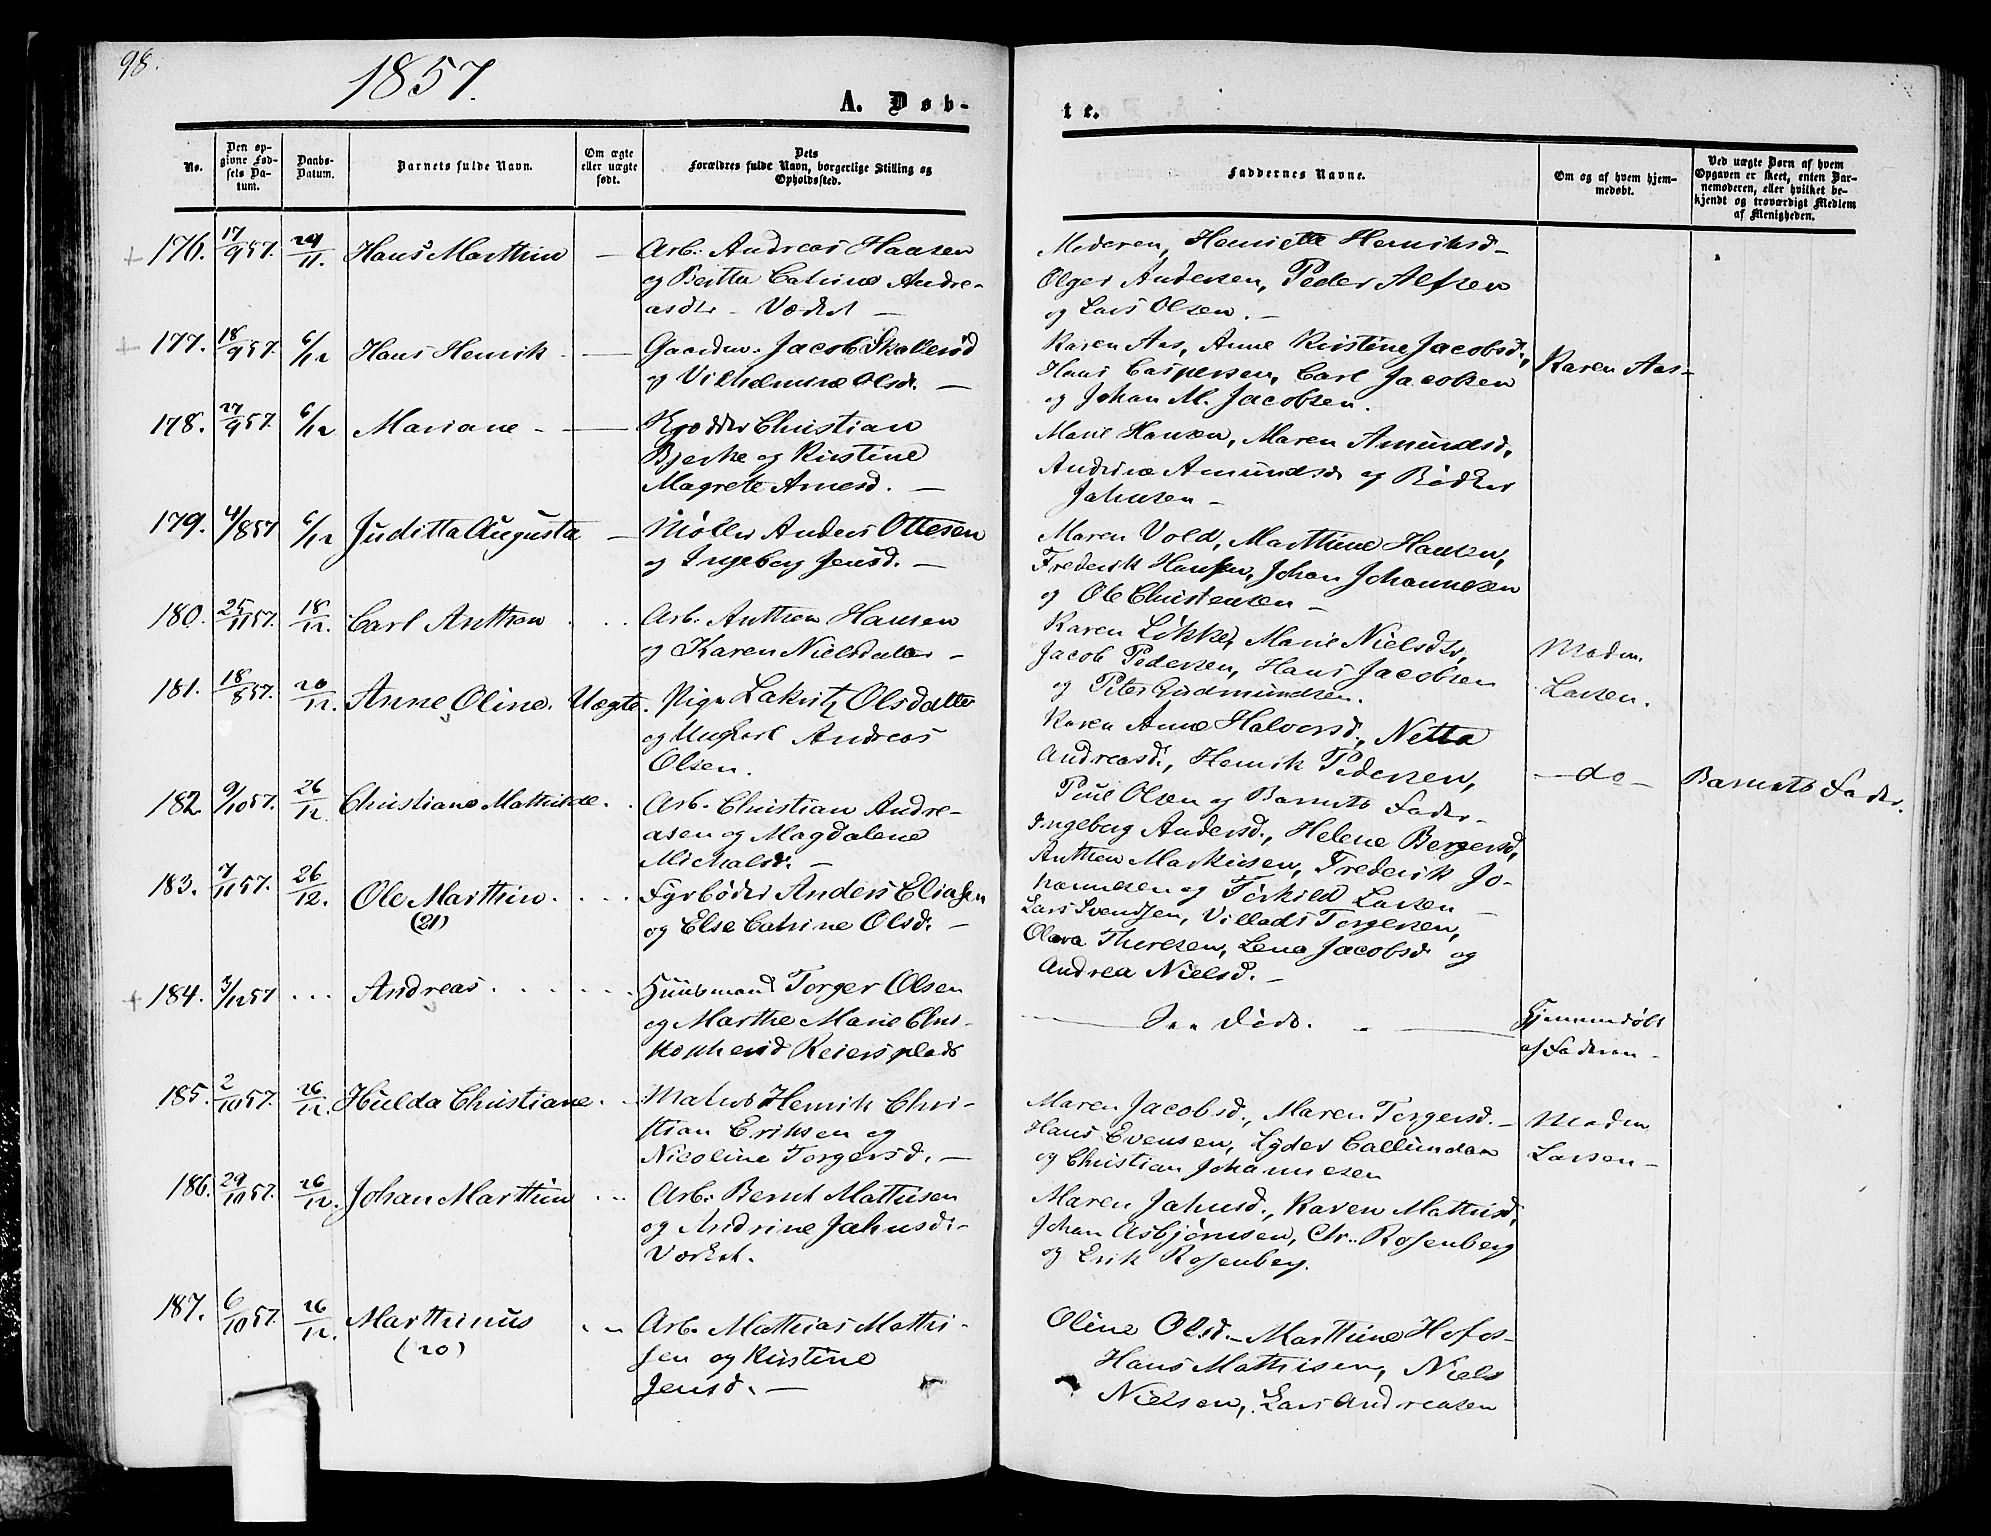 98.
1857.
A. Døb-
te.
No.
Den op-
givne Fød-
sels Da-
tum.
Daabs-
Datum.
Barnets fulde Navn.
Om ægte
eller uægte
født.
Dets
Forældres fulde Navn, borgerlige Stilling og
Opholdssted.
Faddernes Navne.
Om og af hvem hjem-
medøbt.
Ved uægte Børn af hvem
Opgaven er skeet, enten Bar-
nemoderen, eller hvilket be-
kjendt og troværdigt Medlem
af Menigheden.
176. 17/9 57. 29/11. Hans Marthin — Arb. Andreas Hansen
og Beritta Catrine Andre-
asdtr. Værket —
Moderen, Henriette Henriksd.
Olger Andersen, Peder Alfsen
og Lars Olsen. —
177. 18/9 57. 6/12 Hans Henrik — Gaardm. Jacob Skallerød
og Vilhelmine Olsd. —
Karen Aas, Anne Kirstine Jacobsd.,
Hans Caspersen, Carl Jacobsen
og Johan M. Jacobsen.
Karen Aas —
178. 27/9 57. 6/12 Mariane — Christian
Bjerke og Kirstine
Magrete Arnesd. —
Marie Hansen, Maren Amundsd.
Andrine Amundsd. og Bødker
Jahnsen —
179. 4/8 57 6/12 Juditta Augusta — Møller Anders Ottesen
og Ingeborg Jensd. —
Maren Vold, Marthine Hansen,
Frederik Hansen, Johan Johannesen
og Ole Christensen —
180. 25/11 57. 18/12. Carl Anthon . . Arb. Anthon Hansen
og Karen Nielsdatter —
Karen Løkke, Marie Nielsdtr,
Jacob Pedersen, Hans Jacobsen
og Peter Gudmundsen.
Madm.
Larsen.
181. 18/8 57. 20/12. Anne Oline. Uægte. Pige Olsdatter
og Ungkarl Andreas
Olsen.
Karen Anne Halvorsd., Netta
Andreasd., Henrik Pedersen,
Poul Olsen og Barnets Fader —
— do — Barnets Fader.
182. 9/10 57. 26/12. Christiane Mathilde . . Arb. Christian Andre-
asen og Magdalene
Michalsd. —
Ingeborg Andersd., Helene Bergersd,
Anthon Markusen, Frederik Jo-
hannesen og Torkild Larsen —
183. 7/11 57. 26/12. Ole Marthin. . . . Fyrbøder Anders Eliasen
(21)
og Else Catrine Olsd. —
Lars Svendsen, Villads Torgersen,
Olava Theresen, Lena Jacobsd og
Andrea Nielsd. —
184. 3/12 57 . . . Andreas. . . . Huusmand Torger Olsen
og Marthe Marie Chri-
stophersd Reiersplads
— See Døde. —
Hjemmedøbt
af Faderen —
185. 2/10 57. 26/12. Hulda Christiane . . Matros Henrik Chri-
stian Eriksen og
Nicoline Torgersd. —
Maren Jacobsd., Maren Torgersd. —
Hans Evensen, Lyder Callundan
og Christian Johannesen
Madm.
Larsen —
186. 29/10 57. 26/12. Johan Marthin . . Arb. Bernt Mathisen
og Andrine Jahnsd. —
Værket.
Maren Jahnsd., Karen Mathisd,
Johan Asbjørnsen, Chr. Rosenberg
og Erik Rosenberg.
187. 6/10 57. 26/12. Marthinus . . Arb. Mathias Mathi-
(20)
sen og Kirstine
Jensd. —
Oline Olsd. — Marthine Hofos —
Hans Mathisen, Niels
Nielsen, Lars Andreasen